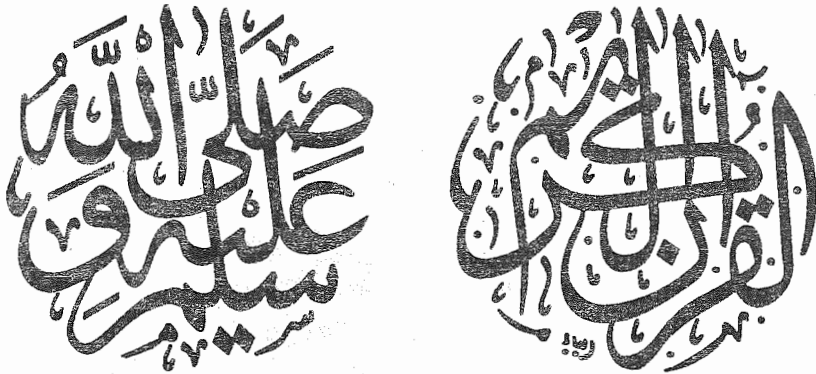 القرآن الكريم
صلى الله عليه وسلم